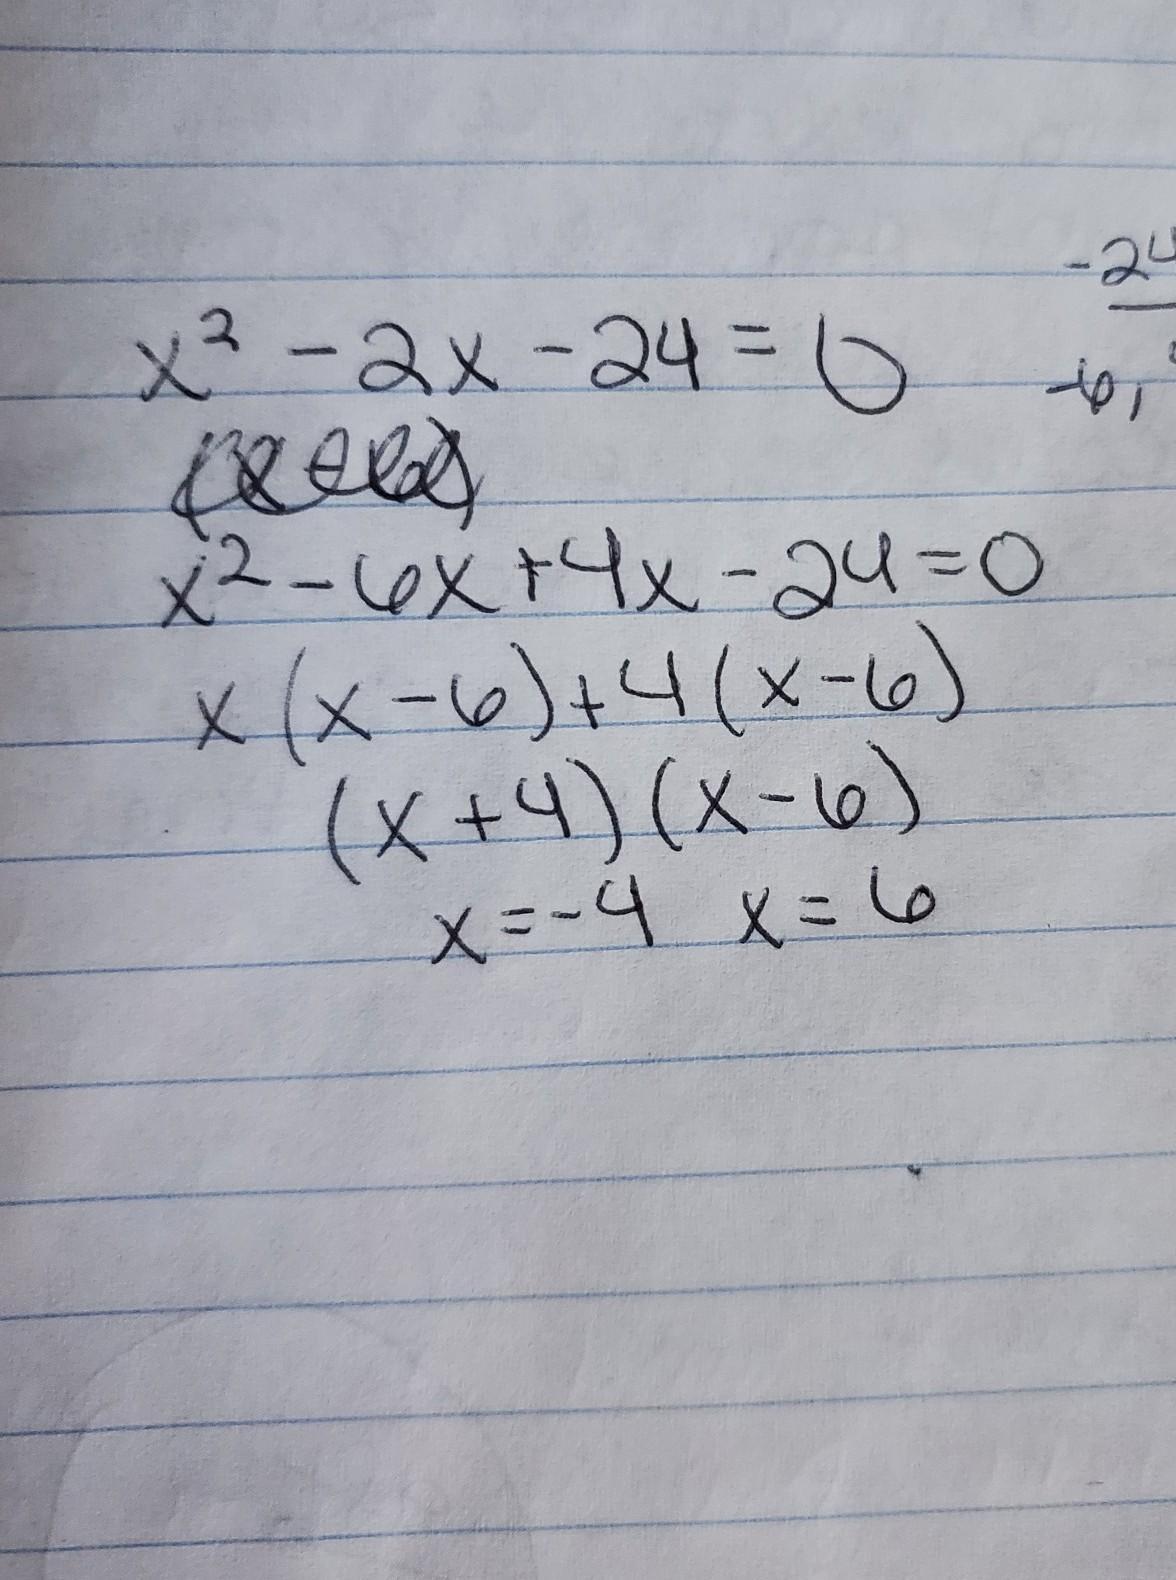 -24
x² - 2x - 24 = 0
-6,
x² - 6x + 4x - 24 = 0
x(x - 6) + 4(x - 6)
(x + 4)(x - 6)
x = -4 x = 6